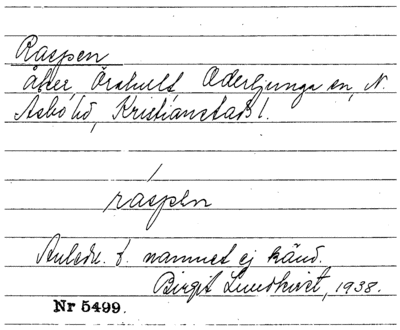 Raspen
åker, Örahult, Oderljunga sn, N.
Asbo hd, Kristianstads l.
ráspen
Anledn. t. namnet ej känd.
Birgit Lundkvist, 1938.
Nr 5499.